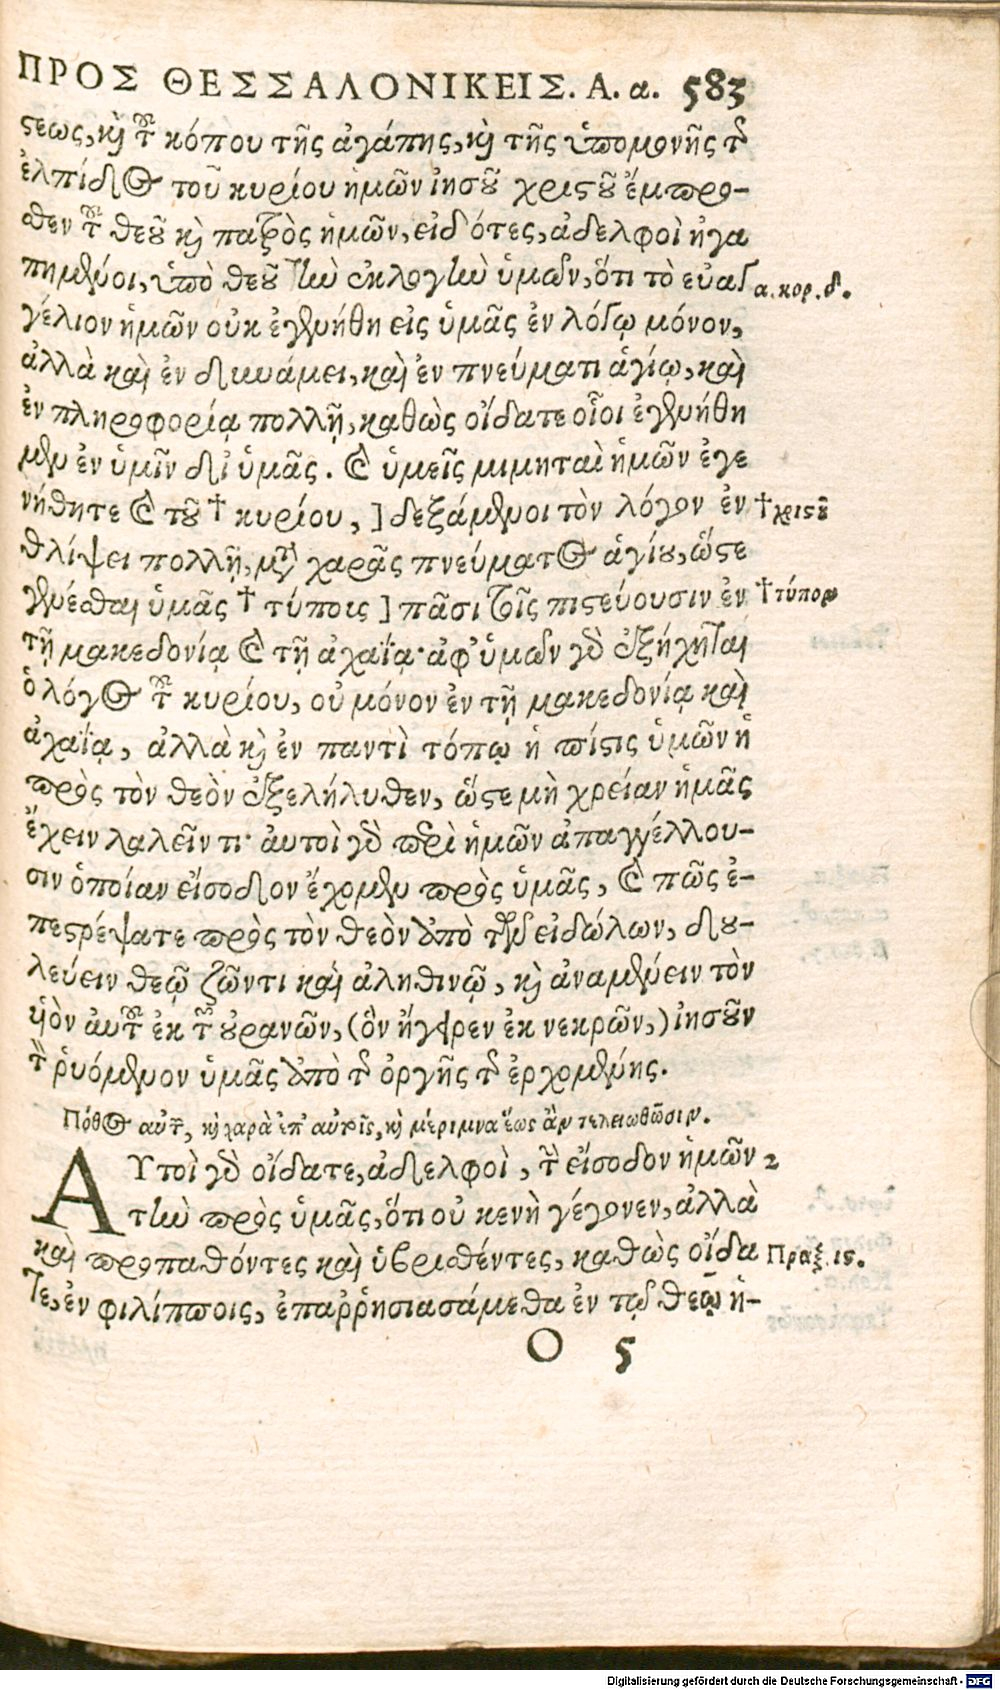 ΠΡΟΣ ΘΕΣΣΑΛΟΝΙΚΕΙΣ. Α. α. 583
στεως, καὶ τοῦ κόπου τῆς ἀγάπης, καὶ τῆς ὑπομονῆς τῆς
ἐλπίδος τοῦ κυρίου ἡμῶν ἰησοῦ χριστοῦ ἔμπρο-
σθεν τοῦ θεοῦ καὶ πατρὸς ἡμῶν, εἰδότες, ἀδελφοὶ ἠγα
πημένοι, ὑπὸ θεοῦ τὴν ἐκλογὴν ὑμῶν, ὅτι τὸ εὐαγ
α. κορ. δ.
γέλιον ἡμῶν οὐκ ἐγενήθη εἰς ὑμᾶς ἐν λόγῳ μόνον,
ἀλλὰ καὶ ἐν δυνάμει, καὶ ἐν πνεύματι ἁγίῳ, καὶ
ἐν πληροφορίᾳ πολλῇ, καθὼς οἴδατε οἷοι ἐγενήθη
μεν ἐν ὑμῖν δι᾽ ὑμᾶς. Καὶ ὑμεῖς μιμηταὶ ἡμῶν ἐγε
νήθητε καὶ τοῦ † κυρίου, ] δεξάμενοι τὸν λόγον ἐν
† χριστοῦ
θλίψει πολλῇ, μετὰ χαρᾶς πνεύματος ἁγίου, ὥστε
γενέσθαι ὑμᾶς † τύποις ] πᾶσι τοῖς πιστεύουσιν ἐν
† τύπον
τῇ μακεδονίᾳ καὶ τῇ ἀχαΐᾳ· ἀφ᾽ ὑμῶν γὰρ ἐξήχηται
ὁ λόγος τοῦ κυρίου, οὐ μόνον ἐν τῇ μακεδονίᾳ καὶ
ἀχαΐᾳ, ἀλλὰ καὶ ἐν παντὶ τόπῳ ἡ πίστις ὑμῶν ἡ
πρὸς τὸν θεὸν ἐξελήλυθεν, ὥστε μὴ χρείαν ἡμᾶς
ἔχειν λαλεῖν τι· αὐτοὶ γὰρ περὶ ἡμῶν ἀπαγγέλλου-
σιν ὁποίαν εἴσοδον ἔχομεν πρὸς ὑμᾶς, καὶ πῶς ἐ-
πεστρέψατε πρὸς τὸν θεὸν ἀπὸ τῶν εἰδώλων, δου-
λεύειν θεῷ ζῶντι καὶ ἀληθινῷ, καὶ ἀναμένειν τὸν
υἱὸν αὐτοῦ ἐκ τῶν οὐρανῶν, (ὃν ἤγειρεν ἐκ νεκρῶν,) ἰησοῦν
τὸν ῥυόμενον ὑμᾶς ἀπὸ τῆς ὀργῆς τῆς ἐρχομένης.
Πόθος αὐτοῦ, καὶ χαρὰ ἐπ᾽ αὐτοῖς, καὶ μέριμνα ἕως ἂν τελειωθῶσιν.
ΑΥτοὶ γὰρ οἴδατε, ἀδελφοὶ, τὴν εἴσοδον ἡμῶν 2
τὴν πρὸς ὑμᾶς, ὅτι οὐ κενὴ γέγονεν, ἀλλὰ
καὶ προπαθόντες καὶ ὑβρισθέντες, καθὼς οἴδα
Πράξ. ις.
τε, ἐν φιλίπποις, ἐπαῤῥησιασάμεθα ἐν τῷ θεῷ ἡ-
O 5
Digitalisierung gefördert durch die Deutsche Forschungsgemeinschaft - DFG